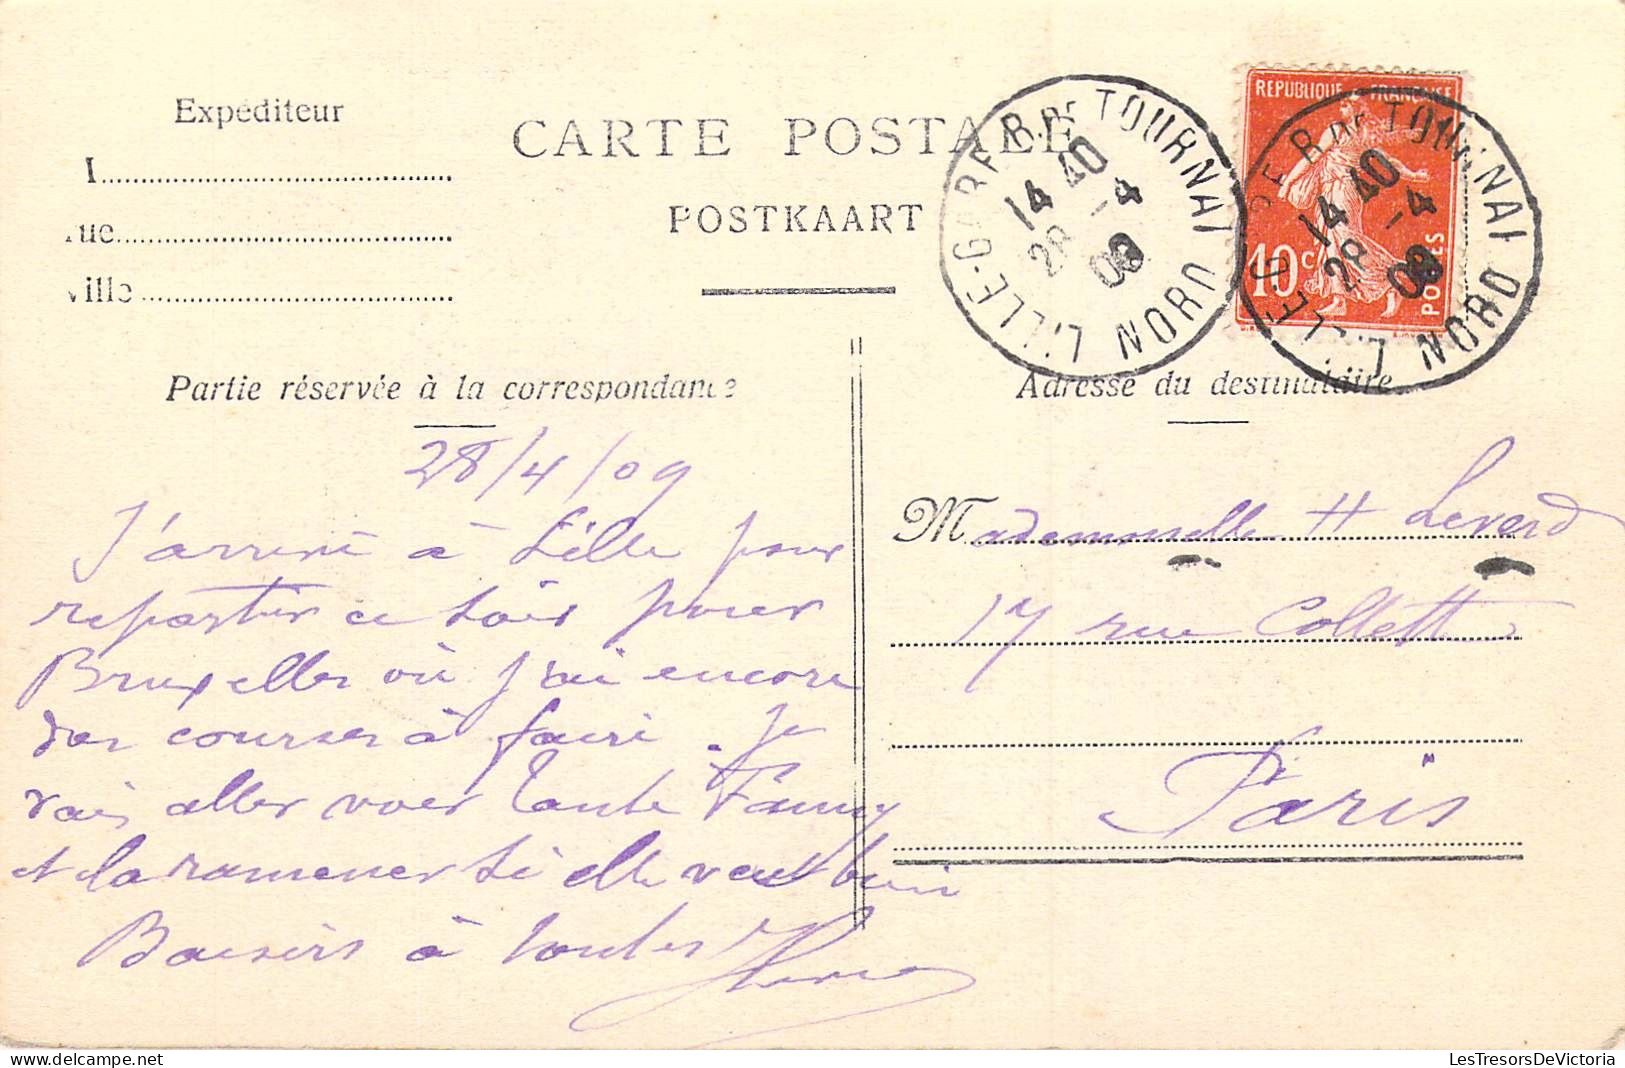 Expéditeur
CARTE POSTALE
POSTKAART
M
Rue
Ville
LILLE-GARE R. DE TOURNAI NORD
14 40
28 -4
09
LILLE-GARE R. DE TOURNAI NORD
14 40
28 -4
09
REPUBLIQUE FRANÇAISE
10 c
POSTES
Partie réservée à la correspondance
Adresse du destinataire
28/4/09
J'arrive à Lille pour
repartir ce soir pour
Bruxelles où j'ai encore
des courses à faire. Je
vais aller voir Tante Fanny
et la ramener si elle veut bien
Baisers à toutes
Mademoiselle H Leverd
17 rue Collette
Paris
LesTresorsDeVictoria